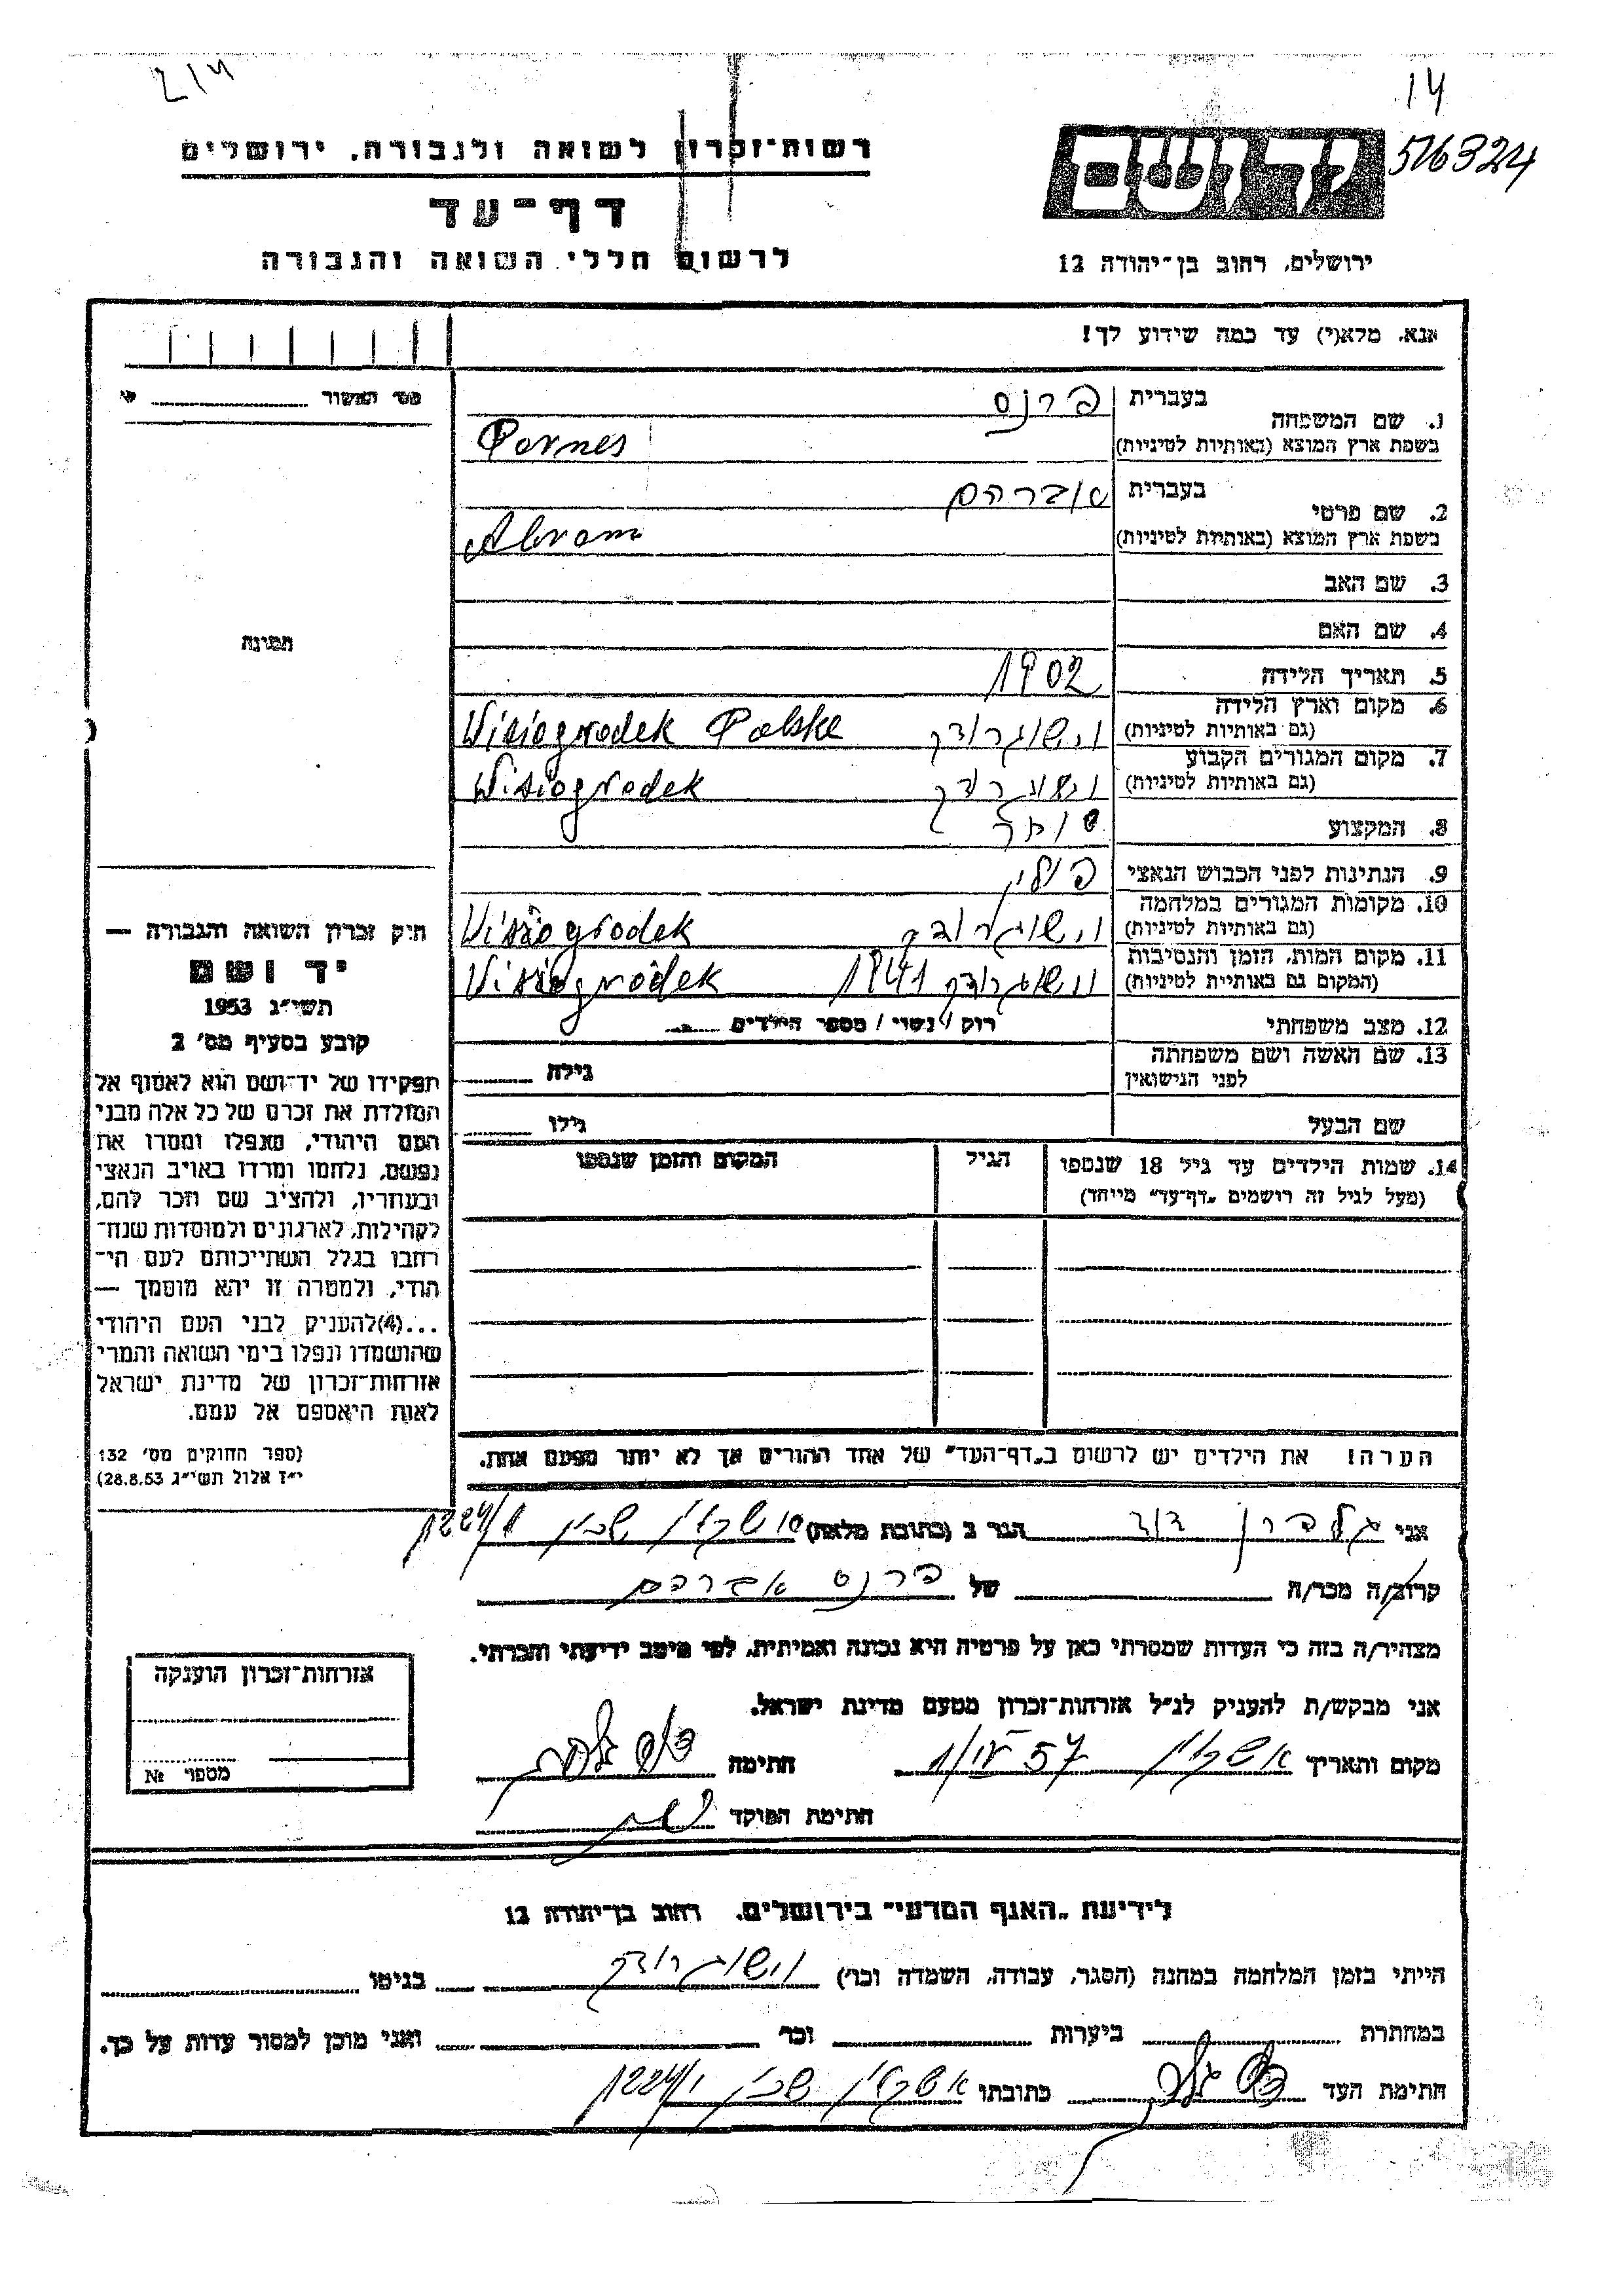 14
516324
רשות־זכרון לשואה ולגבורה, ירושלים
יד ושם
דף־עד
לרשום חללי השואה והגבורה
ירושלים, רחוב בן־יהודה 12
אנא, מלא(י) עד כמה שידוע לך!
מס' האשור
1. שם המשפחה
בעברית פרנס
בשפת ארץ המוצא (באותיות לטיניות) Pornes
2. שם פרטי
בעברית אברהם
בשפת ארץ המוצא (באותיות לטיניות) Abram
3. שם האב
4. שם האם
תמונה
5. תאריך הלידה 1902
6. מקום וארץ הלידה
(גם באותיות לטיניות) וישוגרודק Wisiogrodek Polske
7. מקום המגורים הקבוע
(גם באותיות לטיניות) וישוגרודק Wisiogrodek
8. המקצוע סוחר
9. הנתינות לפני הכבוש הנאצי פולין
10. מקומות המגורים במלחמה
(גם באותיות לטיניות) וישוגרודק Visiogrodek
11. מקום המות, הזמן והנסיבות
(המקום גם באותיות לטיניות) וישוגרודק 1941 Visiogrodek
12. מצב משפחתי רוק / נשוי / מספר הילדים
13. שם האשה ושם משפחתה
לפני הנישואין גילה
שם הבעל גילו
14. שמות הילדים עד גיל 18 שנספו
(מעל לגיל זה רושמים „דף־עד" מיוחד)
הגיל
המקום והזמן שנספו
הערה! את הילדים יש לרשום ב„דף־העד" של אחד ההורים אך לא יותר מפעם אחת.
חיק זכרון השואה והגבורה —
יד ושם
תשי"ג 1953
קובע בסעיף מס' 2
תפקידו של יד־ושם הוא לאסוף אל
המולדת את זכרם של כל אלה מבני
העם היהודי, שנפלו ומסרו את
נפשם, נלחמו ומרדו באויב הנאצי
ובעוזריו, ולהציב שם וזכר להם,
לקהילות, לארגונים ולמוסדות שנח־
רבו בגלל השתייכותם לעם הי־
הודי, ולמטרה זו יהא מוסמך —
...(4)להעניק לבני העם היהודי
שהושמדו ונפלו בימי השואה והמרי
אזרחות־זכרון של מדינת ישראל
לאות היאספם אל עמם.
(ספר החוקים מס' 132
י"ז אלול תשי"ג 28.8.53)
אני דוד הגר ב (כתובת מלאה) אשקלון שכון
קרוב/ה מכר/ה של פרנס אברהם
מצהיר/ה בזה כי העדות שמסרתי כאן על פרטיה היא נכונה ואמיתית, לפי מיטב ידיעתי והכרתי.
אני מבקש/ת להעניק לנ"ל אזרחות־זכרון מטעם מדינת ישראל.
מקום ותאריך אשקלון 57 חתימה
חתימת הפוקד
אזרחות־זכרון הוענקה
מספר №
לידיעת „האגף המדעי" בירושלים, רחוב בן־יהודה 12
הייתי בזמן המלחמה במחנה (הסגר, עבודה, השמדה וכו') וישוגרודק בגיטו
במחתרת ביערות וכו' ואני מוכן למסור עדות על כך.
חתימת העד כתובתו אשקלון שכון